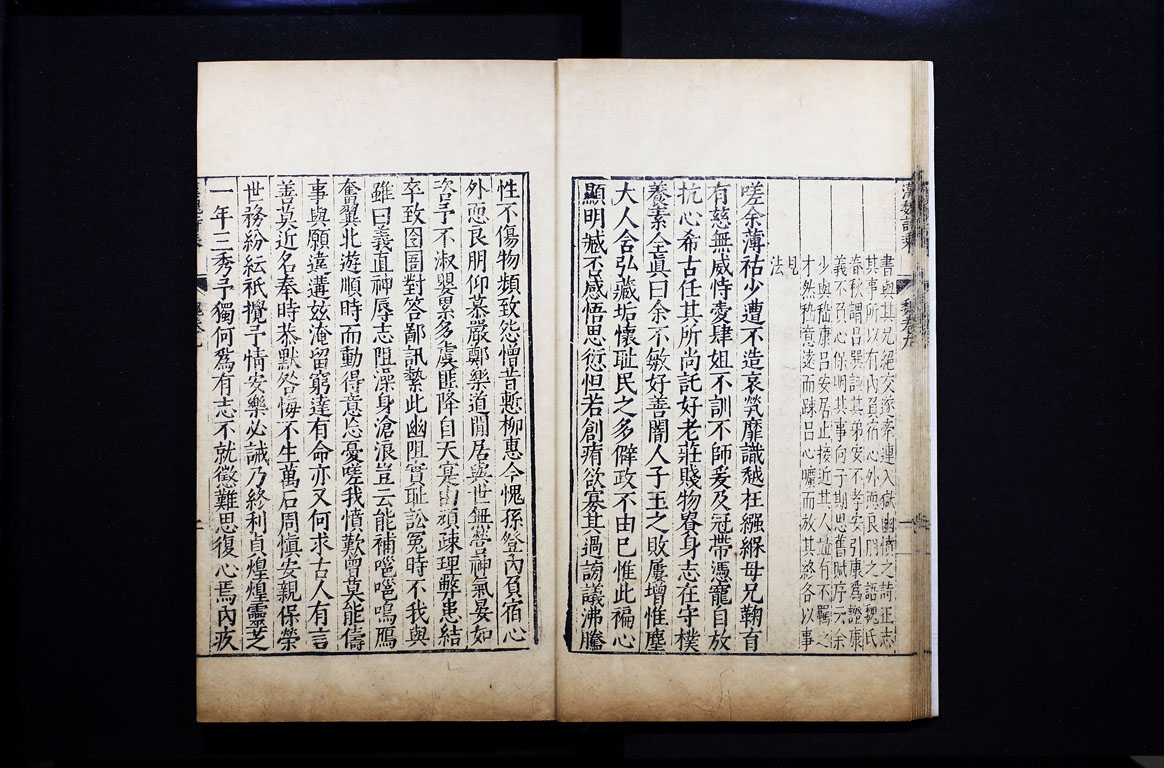 漢魏詩乘 魏卷九 一
書與其兄絕交遂牽連入獄幽憤之詩正志
其事所以有內負宿心外恧良朋之語魏氏
春秋謂呂巽誣其弟安不孝安引康爲證康
義不負心保明其事向子期思舊賦序云余
少與嵇康呂安居止接近其人竝有不羈之
才然嵇意遠而疎呂心曠而放其終各以事
見
法
嗟余薄祜少遭不造哀煢靡識越在繦緥母兄鞠育
有慈無威恃愛肆姐不訓不師爰及冠帶憑寵自放
抗心希古任其所尚託好老莊賤物貴身志在守樸
養素全眞曰余不敏好善闇人子玉之敗屢增惟塵
大人含弘藏垢懷耻民之多僻政不由已惟此褊心
顯明臧否感悟思愆怛若創痏欲寡其過謗議沸騰
性不傷物頻致怨憎昔慙柳惠今愧孫登內負宿心
外恧良朋仰慕嚴鄭樂道閒居與世無營神氣晏如
咨予不淑嬰累多虞匪降自天寔由頑疎理弊患結
卒致囹圄對答鄙訊縶此幽阻實耻訟冤時不我與
雖曰義直神辱志阻澡身滄浪豈云能補嗈嗈鳴鴈
奮翼北遊順時而動得意忘憂嗟我憤歎曾莫能儔
事與願違遘玆淹留窮達有命亦又何求古人有言
善莫近名奉時恭默咎悔不生萬石周慎安親保榮
世務紛紜祇攪予情安樂必誡乃終利貞煌煌靈芝
一年三秀予獨何爲有志不就懲難思復心焉內疚